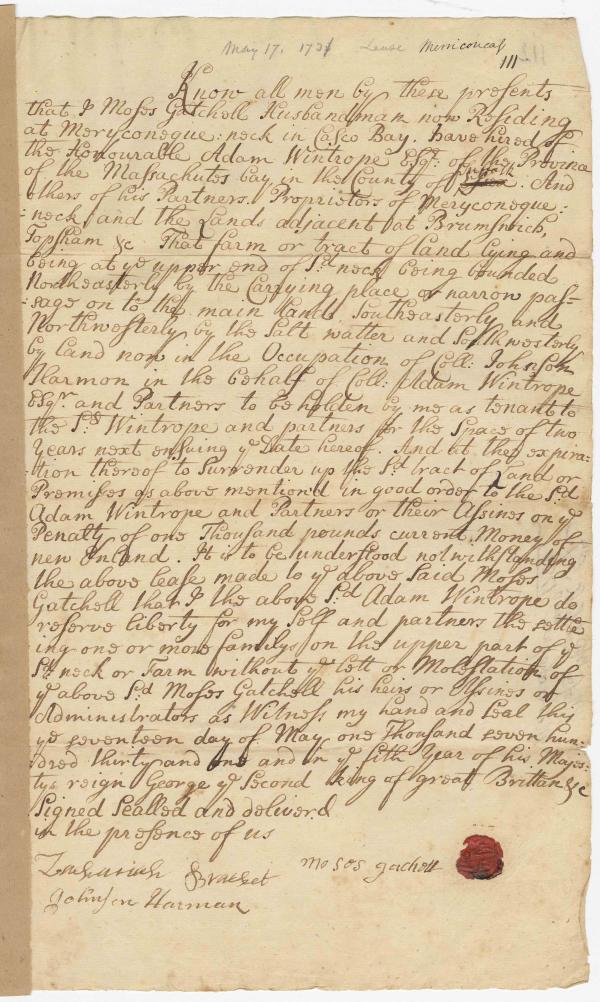 May 17, 1731 Lease Merriconeag
111
Know all men by these presents
that I Moses Gatchell Husbandman now Residing
at Meryconeque:neck in Casco Bay. have hired of
the Honourable Adam Wintrope Esqr. of the Province
of the Massachutes bay in the County of Suffolk. And
others of his Partners. Proprietors of Meryconeque:
:neck and the Lands adjacent at Brumswich,
Topsham &c. That farm or tract of Land lying and
being at ye upper end of Sd. neck being bounded
Northeasterly by the Carrying place or narrow pas=
=sage on to the main land Southeasterly and
Northwesterly by the Salt watter and Southwesterly
by Land now in the Occupation of Coll: Johnson
Harmon in the behalf of Coll: Adam Wintrope
Esqr. and Partners to be holden by me as tenant to
the Sd. Wintrope and partners for the Space of two
Years next ensuing ye Date hereof. And at the expira=
=tion thereof to Surrender up the Sd. tract of Land or
Premises as above mention'd in good order to the Sd.
Adam Wintrope and Partners or their Assines on ye
Penalty of one Thousand pounds current Money of
new Enland. It is to be understood notwithstanding
the above lease made to ye above Said Moses
Gatchell that I the above Sd. Adam Wintrope do
reserve liberty for my Self and partners the settle
ing one or more familys on the upper part of ye
Sd. neck or Farm without ye lett or Molestation of
ye above Sd. Moses Gatchell his heirs or Assines or
Administrators as Witness my hand and Seal this
ye seventeen day of May one Thousand seven hun=
dred thirty and one and in ye fith Year of his Majes=
tys reign George ye Second king of great Brittan &c
Signed Sealled and deliverd
in the presence of us
Zachariah Bracket moses gachell
Johnson Harman